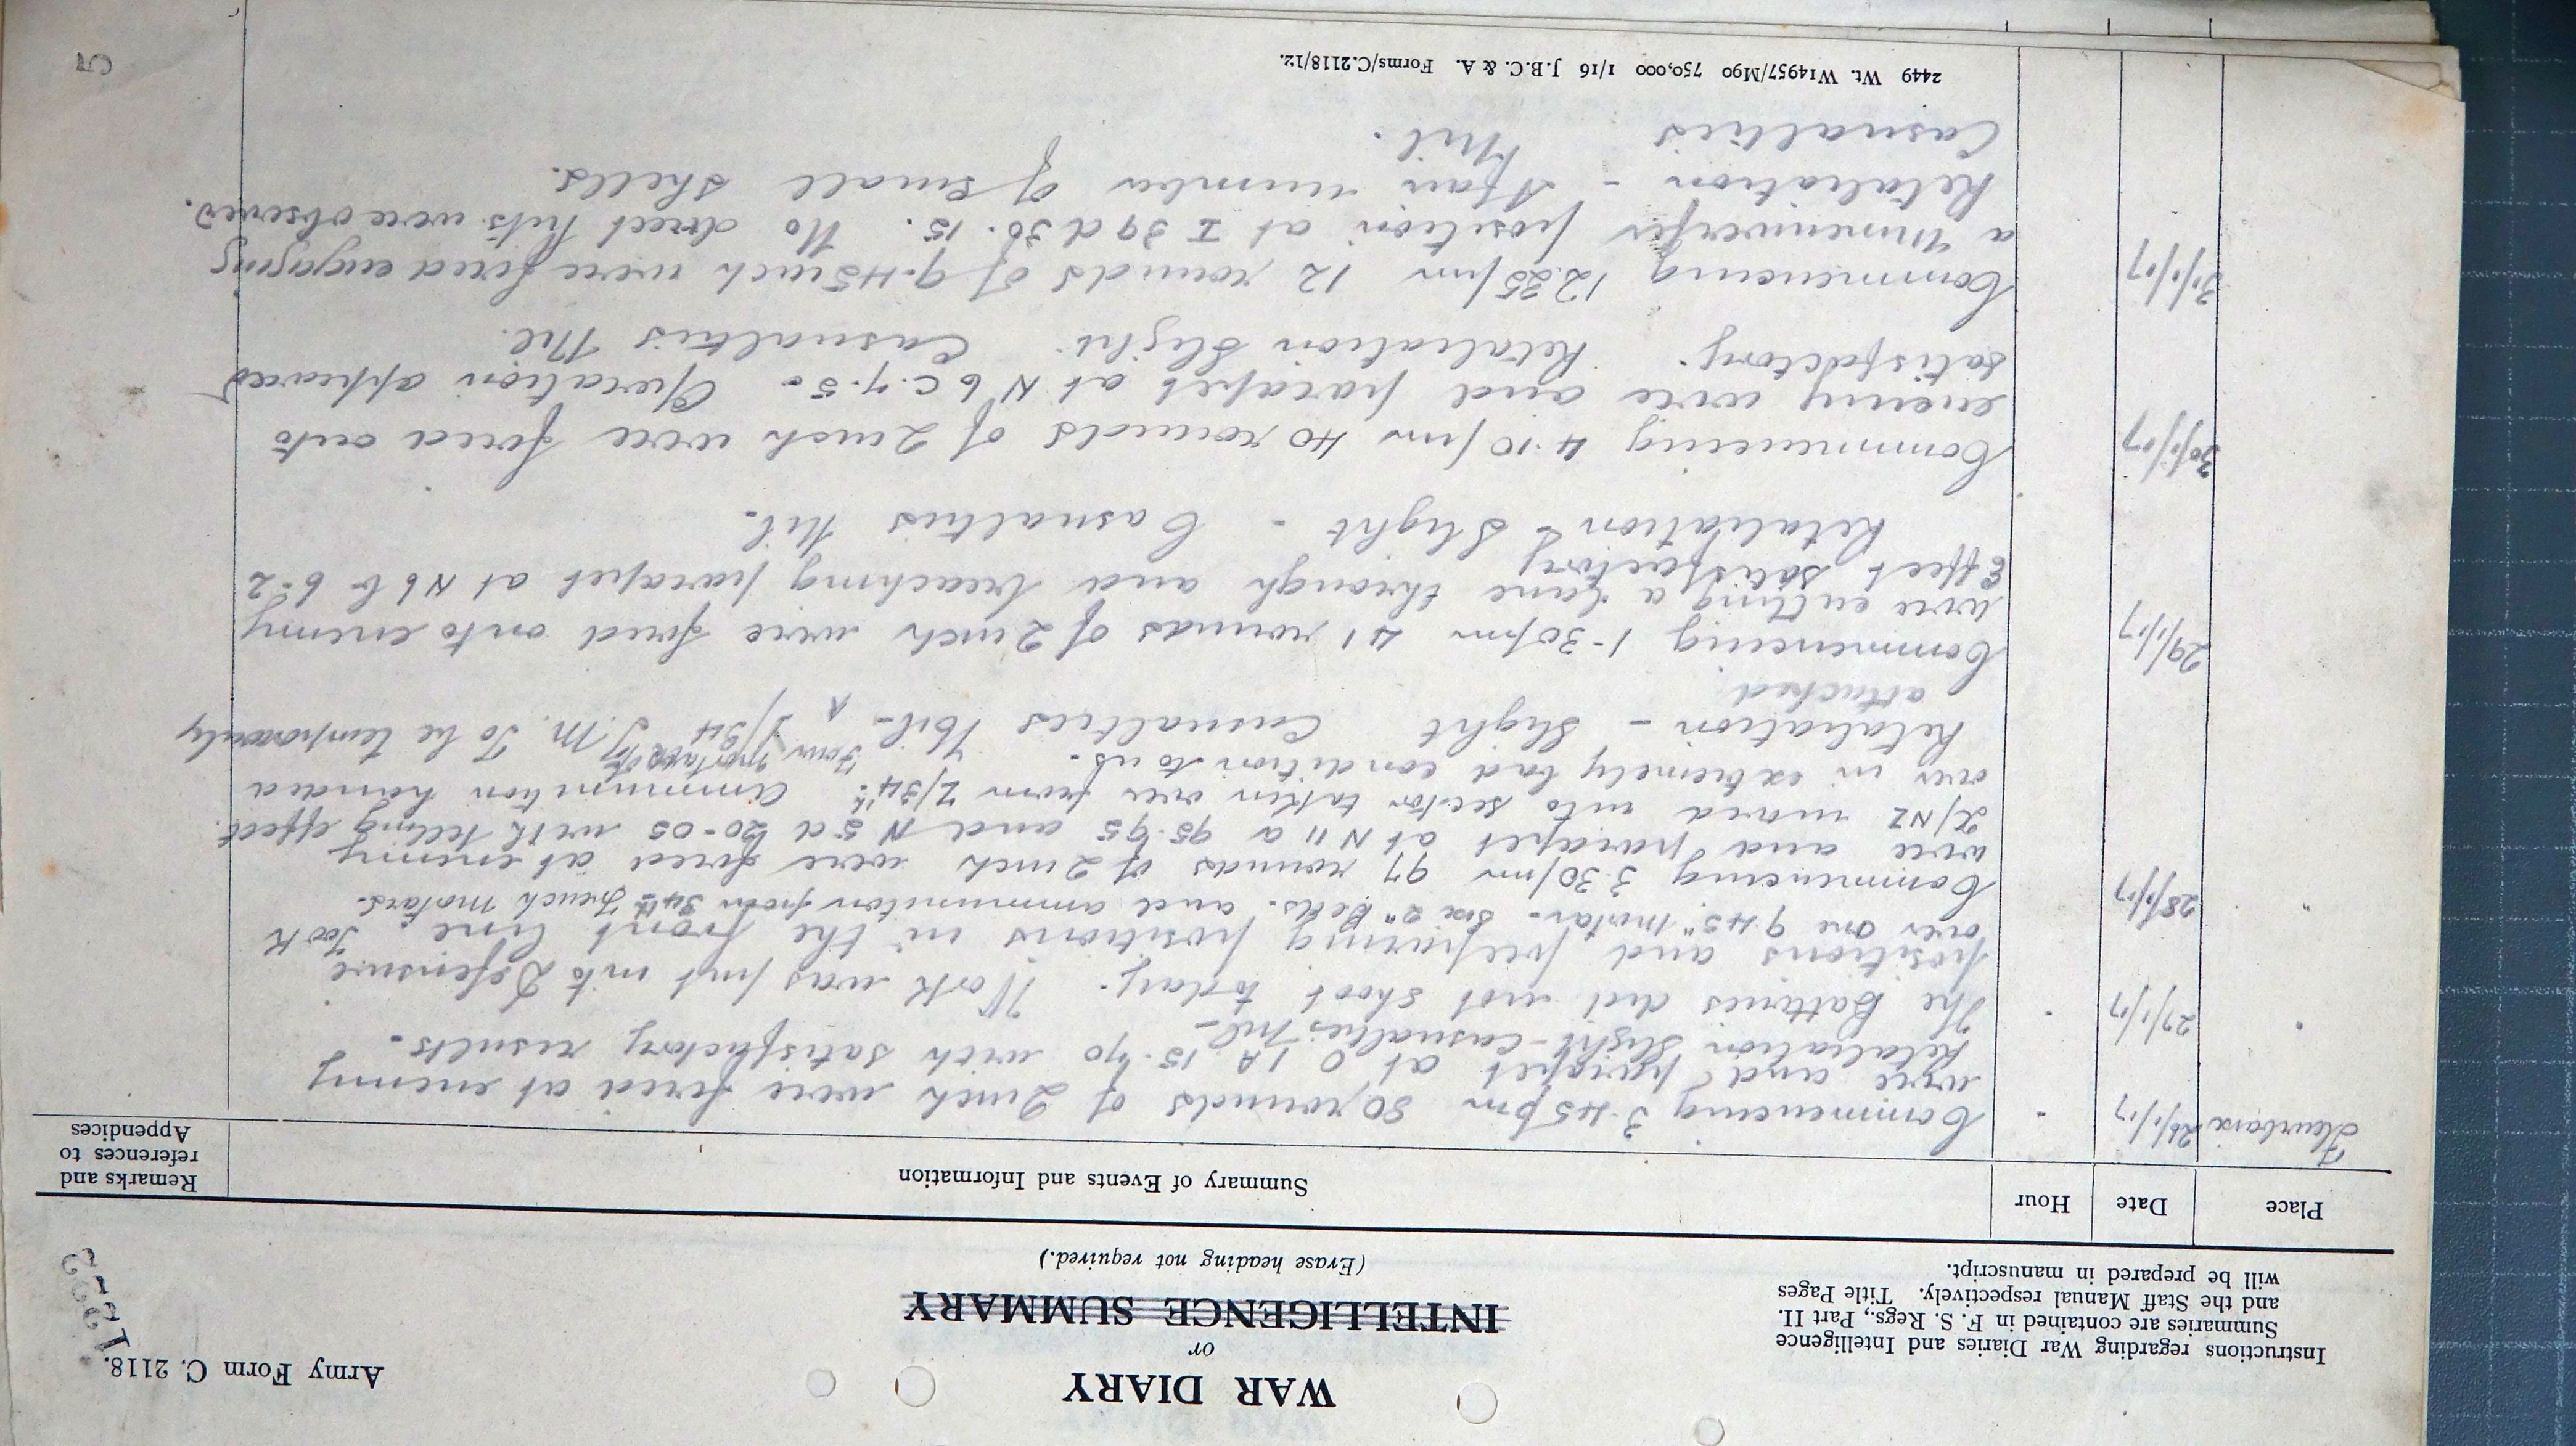 Army Form C. 2118.
WAR DIARY
or
INTELLIGENCE SUMMARY
(Erase heading not required.)
Instructions regarding War Diaries and Intelligence
Summaries are contained in F. S. Regs., Part II.
and the Staff Manual respectively. Title Pages
will be prepared in manuscript.
Place Date Hour Summary of Events and Information Remarks and references to Appendices
Fleurbaix 26/1/17 Commencing 3.45 pm 80 rounds of 2 inch were fired at enemy
wire and parapet at O 1A 15.40 with satisfactory results.
Retaliation Slight - Casualties Nil -
27/1/17 The Batteries did not shoot today. Work was put into Defensive
positions and preparing positions in the front line. Took
over one 9.45" mortar - six 2" Beds. and ammunition from 34th Trench Mortars.
28/1/17 Commencing 3.30 pm 97 rounds of 2 inch were fired at enemy
wire and parapet at N 11 a 95.95 and N 5 d 20-05 with telling effect.
X/NZ moved into sector taken over from Z/34th. Ammunition handed
over in extremely bad condition to us. Four mortars of
Retaliation - Slight Casualties Nil - Y/34 T.M. To be temporarily
attached
29/1/17 Commencing 1-30 pm 41 rounds of 2 inch were fired onto enemy
wire cutting a lane through and breaching parapet at N6 b 6-2
Effect satisfactory
Retaliation - Slight - Casualties Nil -
30/1/17 Commencing 4.10 pm 40 rounds of 2 inch were fired onto
enemy wire and parapet at N 6 c.4.5 - Operation appeared
satisfactory. Retaliation Slight. Casualties Nil.
31/1/17 Commencing 12.35 pm 12 rounds of 9.45 inch were fired engaging
a minenwerfer position at I 39 d 30.15. No direct hits were observed.
Retaliation - A fair number of small shells.
Casualties Nil.
2449 Wt. W14957/M90 750,000 1/16 J.B.C. & A. Forms/C.2118/12.
5